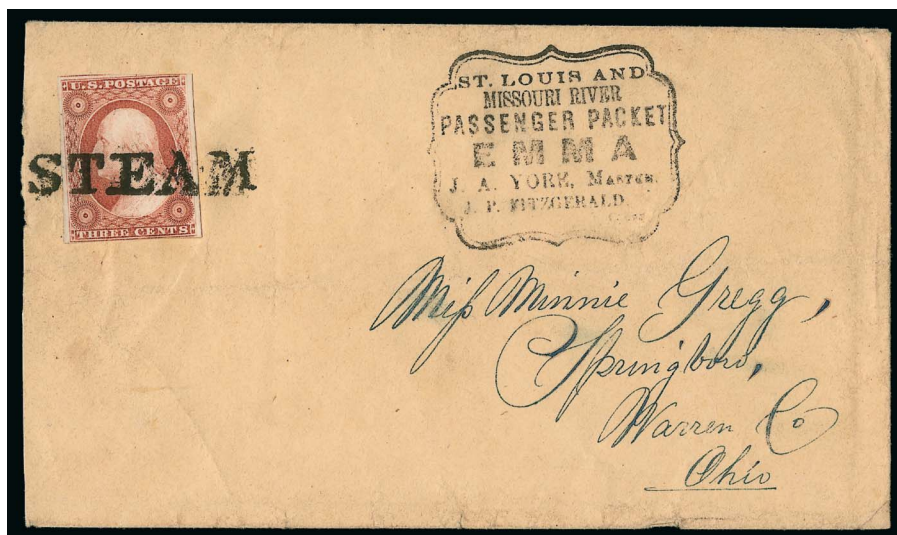 U.S. POSTAGE
STEAM
THREE CENTS
ST. LOUIS AND
MISSOURI RIVER
PASSENGER PACKET
EMMA
J. A. YORE, MASTER,
J. P. FITZGERALD,
Miss Minnie Gregg,
Springboro,
Warren Co
Ohio